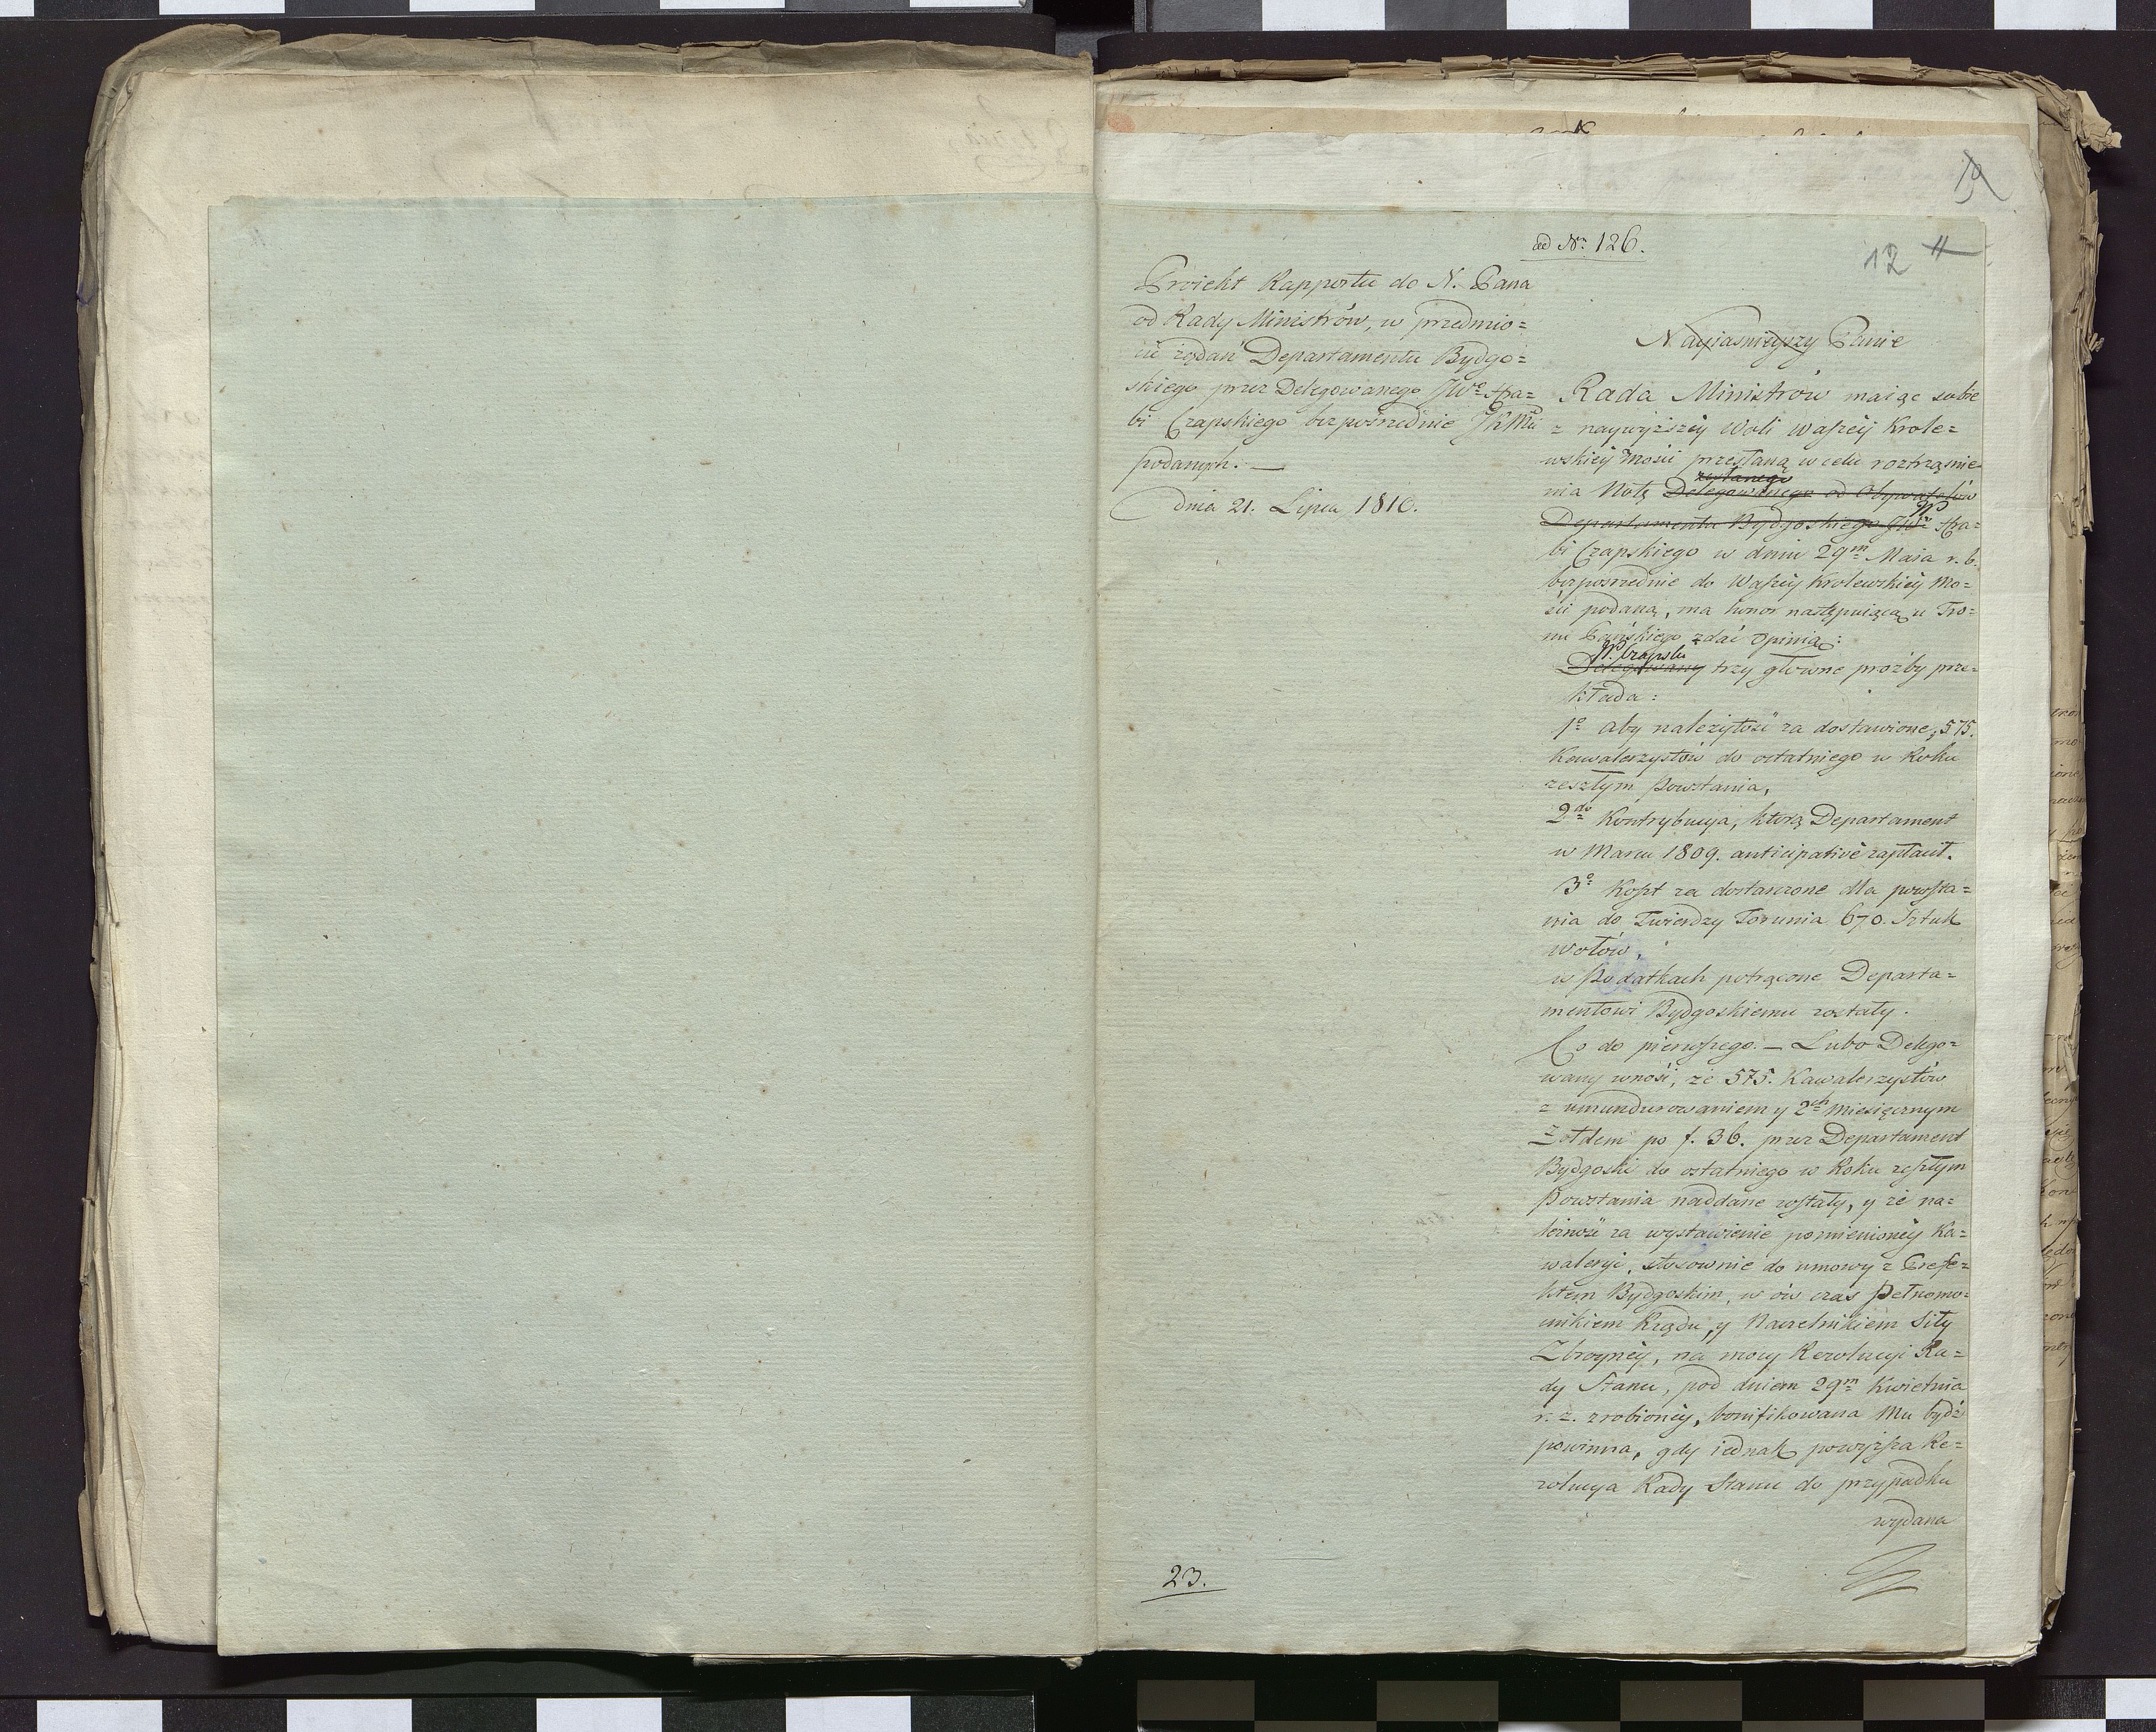 ad Nr. 126.
12 11
Proiekt Rapportu do N. Pana
od Rady Ministrów, w przedmio=
cie żądań Departamentu Bydgo=
skiego przez Delegowanego JWo Hra=
bi Czapskiego bezpośrednie JKMci
podanych. —
dnia 21. Lipca 1810.
Nayiaśnieyszy Panie
Rada Ministrów maiąc sobie
z naywyższey woli Waszey Krole=
wskiey Mości przesłaną w celu roztrząśnie=
zesłanego
nia Notę Delegowanego od Obywatelów
JP
Departamentu Bydgoskiego JWo Hra=
bi Czapskiego w dniu 29m Maia r. b.
bezpośrednie do Waszey Krolewskiey Mo=
ści podaną, ma honor następuiącą u Tro=
nu Pańskiego zdać opinią:
JP. Czapski
Delegowany trzy główne prośby prze=
kłada:
1o aby należytość za dostawione, 575.
Kawalerzystów do ostatniego w Roku
zeszłym Powstania,
2do Kontrybucya, którą Departament
w Marcu 1809. anticipativè zapłacił.
3o Koszt za dostarczone dla powsta=
nia do Twierdzy Torunia 670. Sztuk
wołów,
w Podatkach potrącone Departa=
mentowi Bydgoskiemu zostały.
Co do pierwszego. — Lubo Delego=
wany wnosi, że 575. Kawalerzystów
z umundurowaniem y 2ch miesięcznym
Żołdem po f. 36. przez Departament
Bydgoski do ostatniego w Roku zeszłym
Powstania naddane zostały, y że na=
leżność za wystawienie pomienioney Ka=
waleryi, stosownie do umowy z Prefe=
ktem Bydgoskim, w ów czas Pełnomo=
cnikiem Rządu, y Naczelnikiem Siły
Zbroyney, na mocy Rezolucyi Ra=
dy Stanu, pod dniem 29m Kwietnia
r. z. zrobioney, bonifikowana Mu bydź
powinna, gdy iednak powyższa Re=
zolucya Rady Stanu do przypadku
wydana
23.